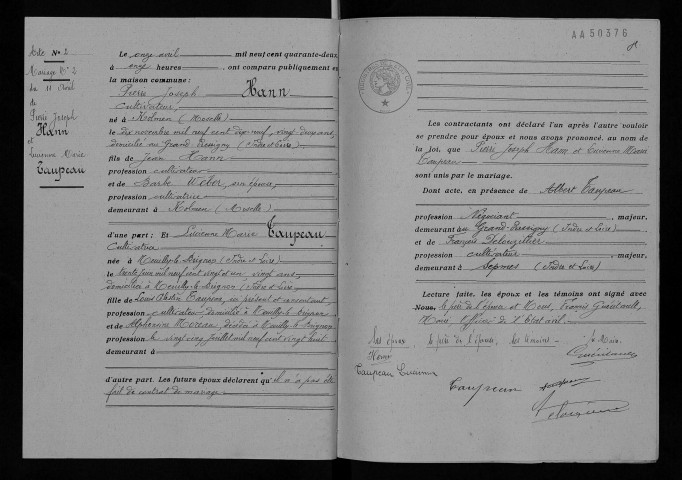 Acte N° 2
Mariage N° 2
du 11 Avril
de
Pierre Joseph
Hann
et
Lucienne Marie
Taupeau
Le onze avril mil neuf cent quarante-deux
à onze heures ont comparu publiquement en
la maison commune :
Pierre Joseph Hann
Cultivateur
né à Holmen (Moselle)
le dix novembre mil neuf cent dix-neuf, vingt deux ans,
domicilié au Grand-Pressigny (Indre et Loire)
fils de Jean Hann
profession cultivateur
et de Barbe Weber, son épouse,
profession cultivatrice
demeurant à Holmen (Moselle)
d'une part : Et Lucienne Marie Taupeau
Cultivatrice
née à Neuilly-le-Brignon (Indre et Loire)
le trente juin mil neuf cent vingt et un vingt ans,
domiciliée à Neuilly-le-Brignon (Indre et Loire)
fille de Louis Taupeau, ici présent et consentant,
profession cultivateur domicilié à Neuilly-le-Brignon
et de Alphonsine Moreau, décédée à Neuilly-le-Brignon
profession le vingt cinq juillet mil neuf cent vingt huit
demeurant à
d'autre part. Les futurs époux déclarent qu'il n'a pas été
fait de contrat de mariage.
AA50376
Les contractants ont déclaré l'un après l'autre vouloir
se prendre pour époux et nous avons prononcé, au nom de
la loi, que Pierre Joseph Hann et Lucienne Marie
Taupeau
sont unis par le mariage.
Dont acte, en présence de Albert Taupeau
profession Négociant, majeur,
demeurant à Grand-Pressigny (Indre et Loire)
et de François
profession cultivateur, majeur,
demeurant à Sepmes (Indre et Loire)
Lecture faite, les époux et les témoins ont signé avec
Nous, le père de l'épouse et Nous, Francis Guérituault,
Maire, officier de l'Etat civil.
Les époux, le père de l'épouse, les témoins, le Maire,
Hann
Taupeau Lucienne
Taupeau